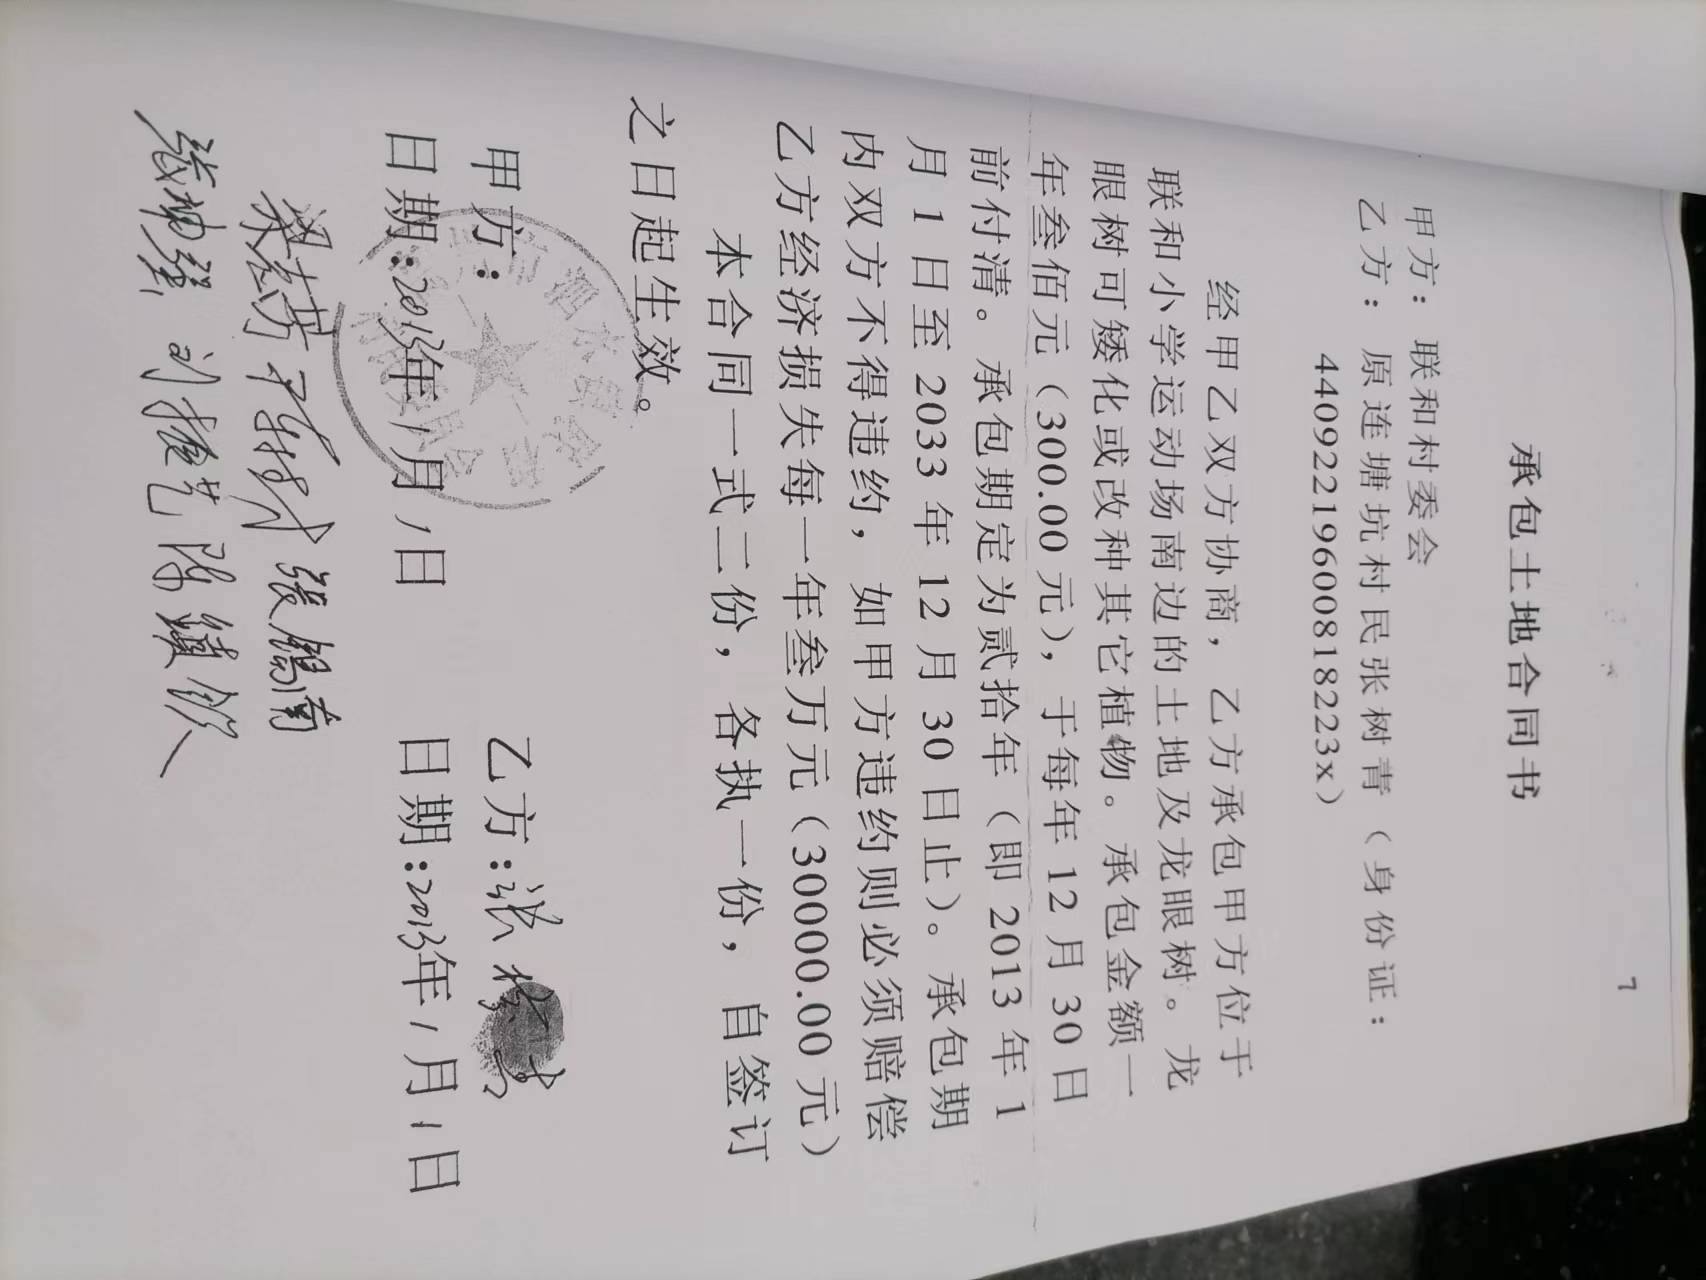 7
承包土地合同书
甲方：联和村委会
乙方：原连塘坑村民张树青（身份证：
44092219600818223x）
经甲乙双方协商，乙方承包甲方位于
联和小学运动场南边的土地及龙眼树。龙
眼树可矮化或改种其它植物。承包金额一
年叁佰元（300.00 元），于每年 12 月 30 日
前付清。承包期定为贰拾年（即 2013 年 1
月 1 日至 2033 年 12 月 30 日止）。承包期
内双方不得违约，如甲方违约则必须赔偿
乙方经济损失每一年叁万元（30000.00 元）
本合同一式二份，各执一份，自签订
之日起生效。
甲方： 乙方：张树青
日期：2013年1月1日 日期：2013年1月1日
张锡南